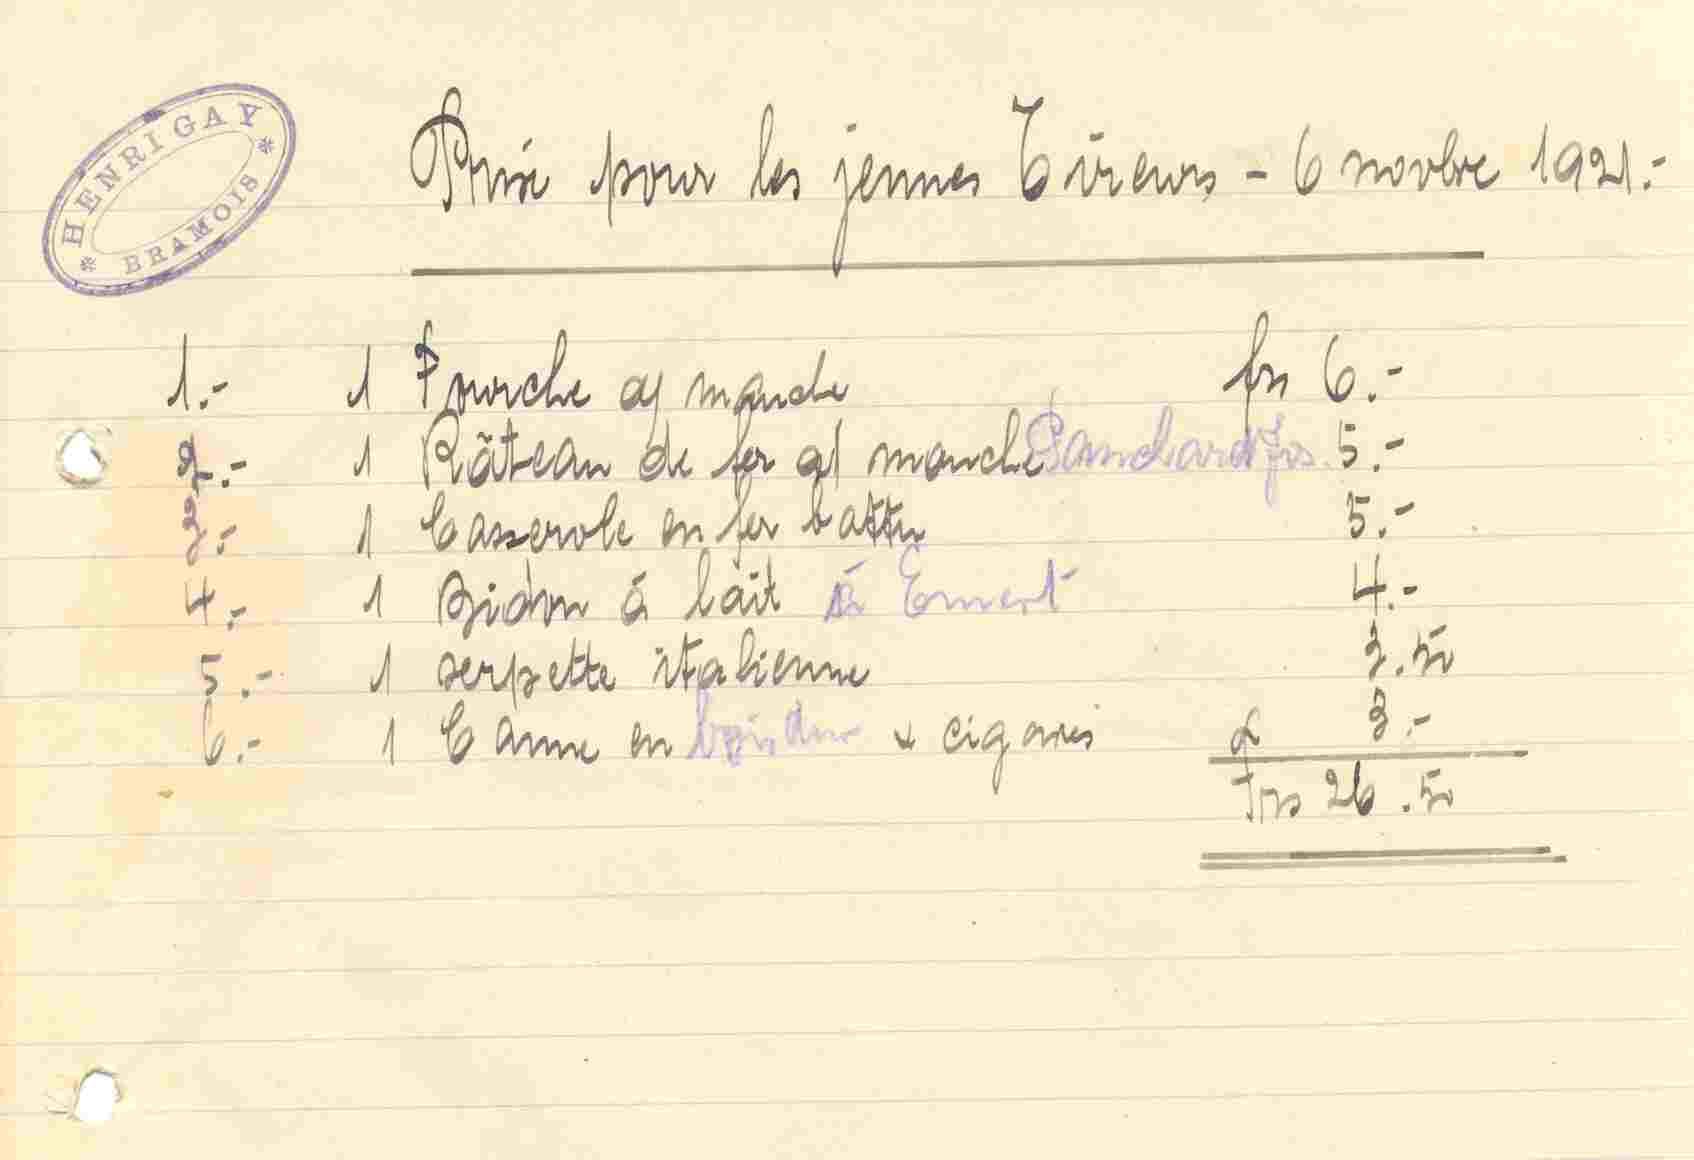 * HENRI GAY *
BRAMOIS
Prix pour les jeunes Tireurs - 6 novbre 1921.-
1.- 1 Fourche a/ manche frs 6.-
2.- 1 Râteau de fer a/ manche 5.-
3.- 1 Casserole en fer battu 5.-
4.- 1 Bidon à lait à 4.-
5.- 1 serpette italienne 3.50
6.- 1 Canne en + cigares 3.-
frs 26.50